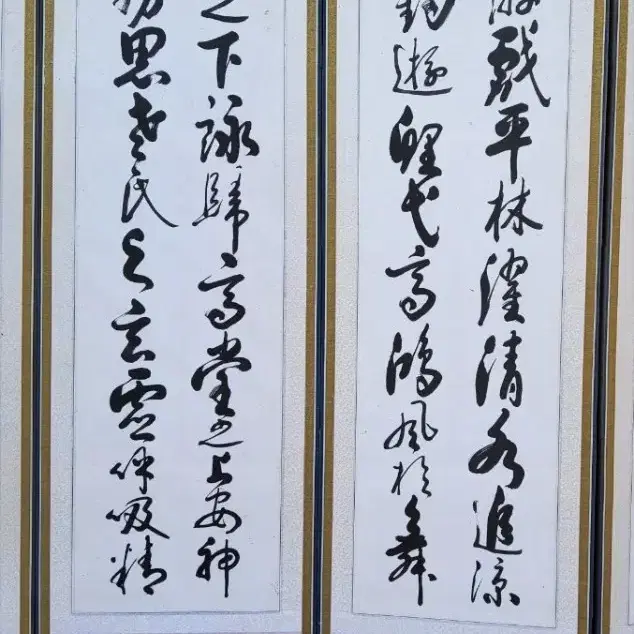 戲平林濯清水追涼
釣遊鯉弋高鴻風於舞
之下詠歸高堂之上安神
思老氏之玄虛呼吸精